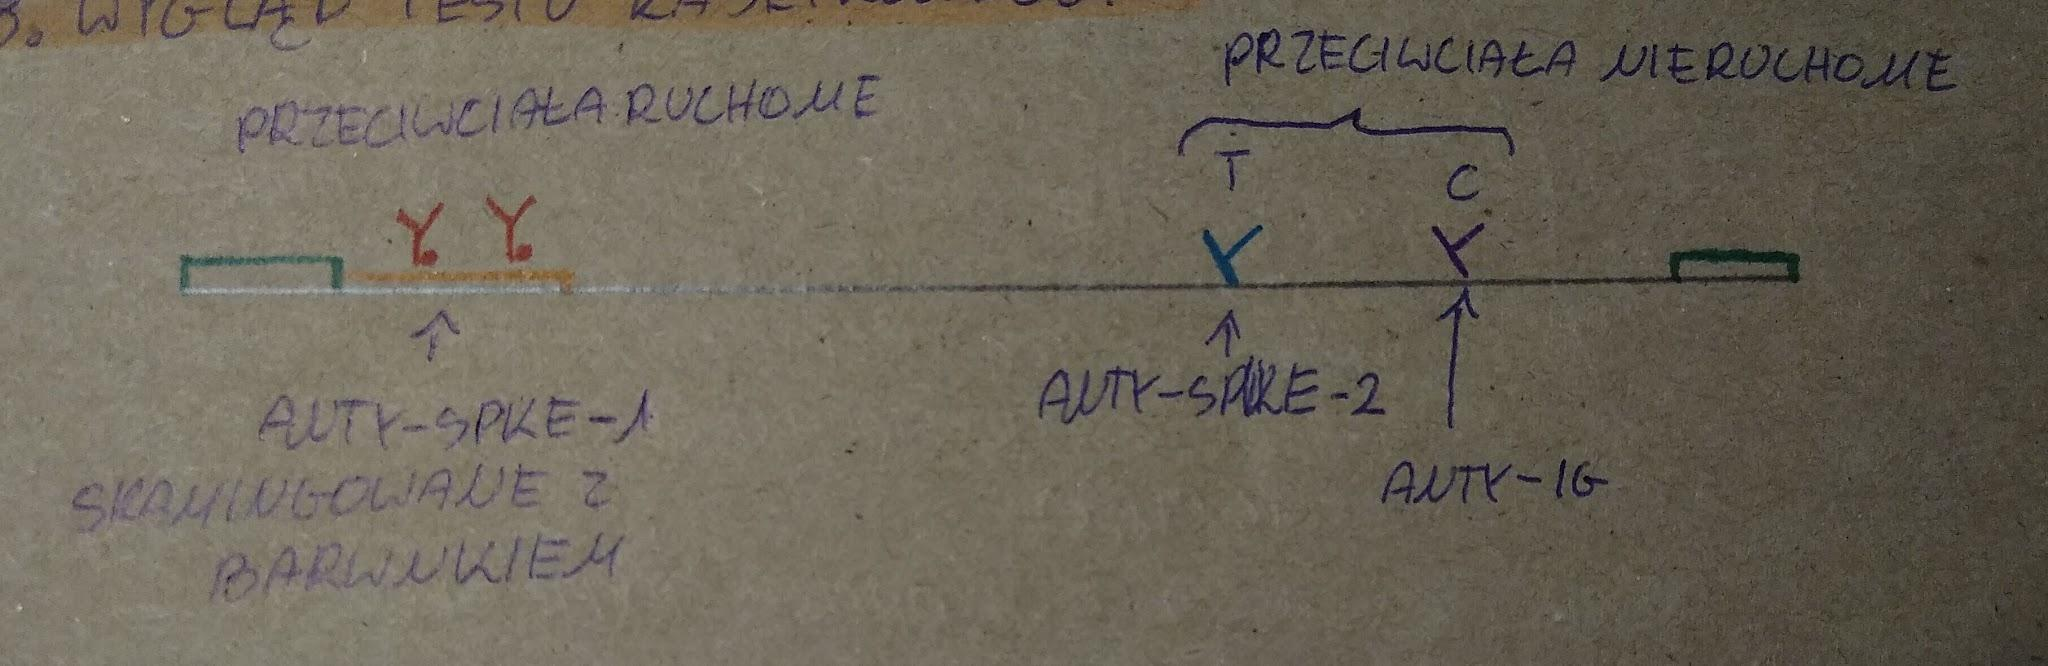 3. WYGLĄD TESTU KASETKOWEGO:
PRZECIWCIAŁA RUCHOME
PRZECIWCIAŁA NIERUCHOME
T
C
ANTY-SPIKE-1
SKAMINGOWANE Z
BARWNIKIEM
ANTY-SPIKE-2
ANTY-IG